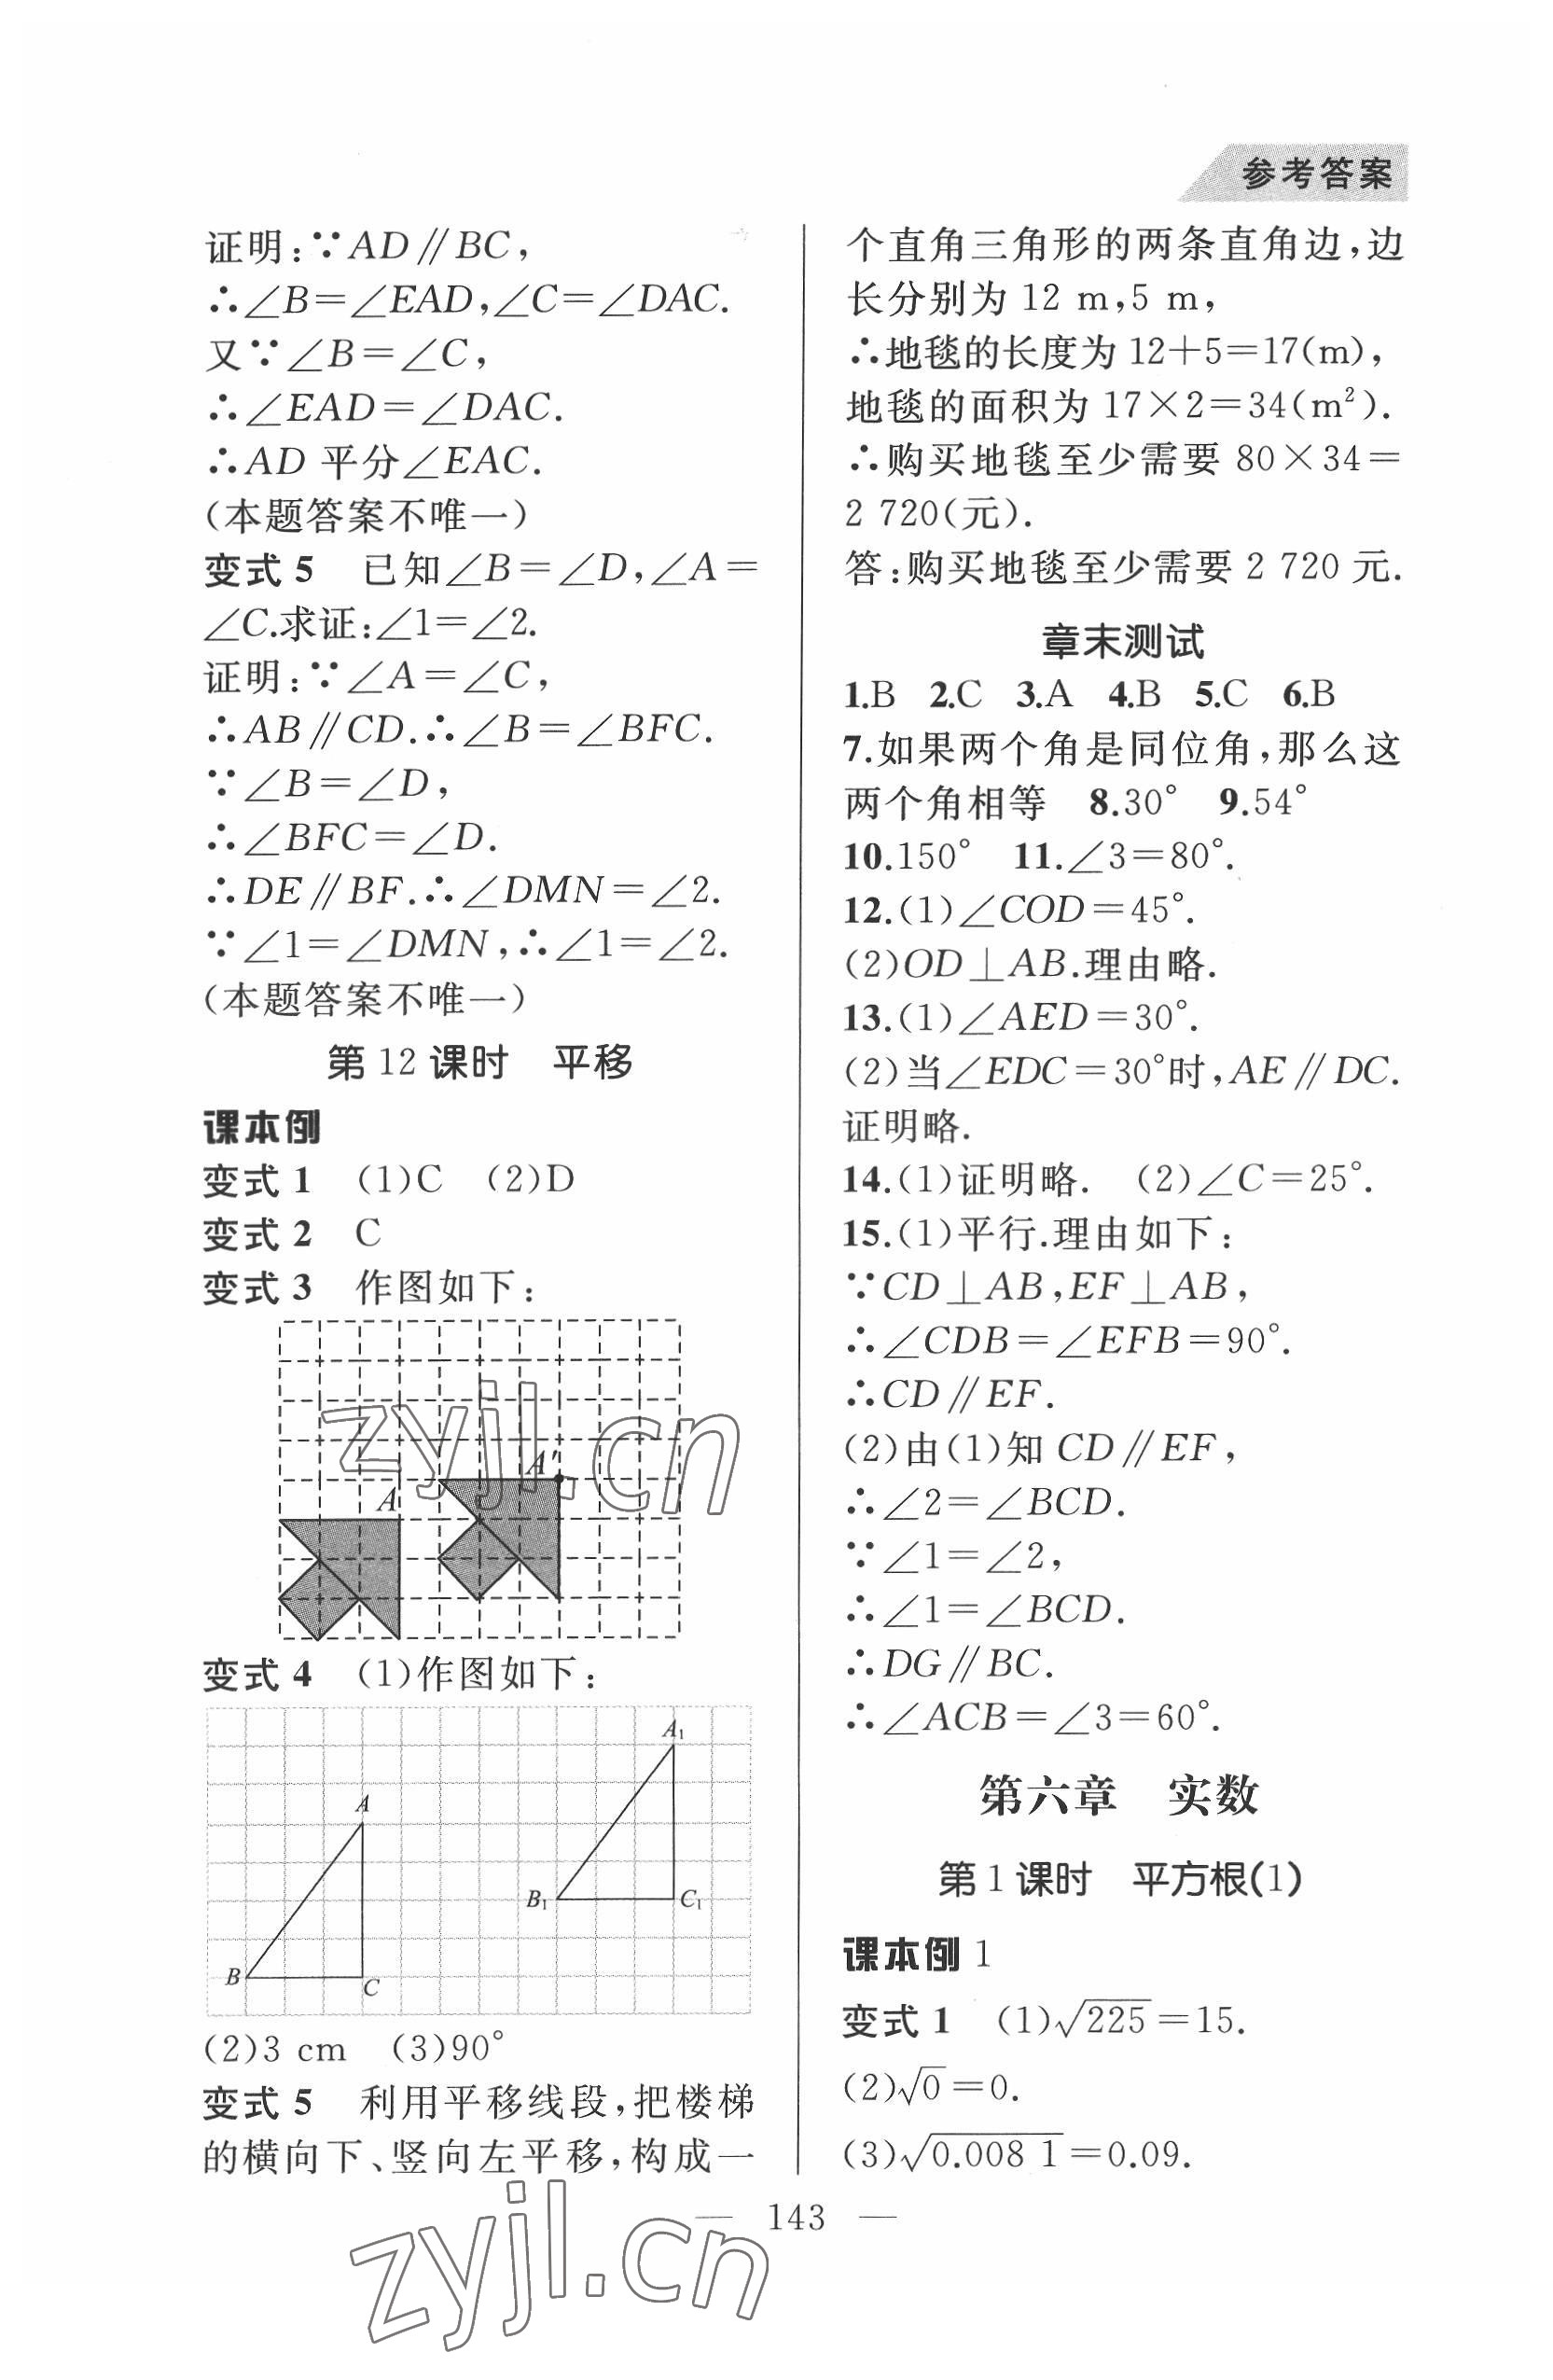 参考答案
证明:∵AD∥BC,
∴∠B=∠EAD,∠C=∠DAC.
又∵∠B=∠C,
∴∠EAD=∠DAC.
∴AD 平分∠EAC.
(本题答案不唯一)
变式 5 已知∠B=∠D,∠A=
∠C.求证:∠1=∠2.
证明:∵∠A=∠C,
∴AB∥CD.∴∠B=∠BFC.
∵∠B=∠D,
∴∠BFC=∠D.
∴DE∥BF.∴∠DMN=∠2.
∵∠1=∠DMN,∴∠1=∠2.
(本题答案不唯一)
第 12 课时 平移
课本例
变式 1 (1)C (2)D
变式 2 C
变式 3 作图如下:
A'
A
zyjl.cn
变式 4 (1)作图如下:
A₁
A
B₁
C₁
B
C
(2)3 cm (3)90°
变式 5 利用平移线段,把楼梯
的横向下、竖向左平移,构成一
个直角三角形的两条直角边,边
长分别为 12 m,5 m,
∴地毯的长度为 12+5=17(m),
地毯的面积为 17×2=34(m²).
∴购买地毯至少需要 80×34=
2 720(元).
答:购买地毯至少需要 2 720 元.
章末测试
1.B 2.C 3.A 4.B 5.C 6.B
7.如果两个角是同位角,那么这
两个角相等 8.30° 9.54°
10.150° 11.∠3=80°.
12.(1)∠COD=45°.
(2)OD⊥AB.理由略.
13.(1)∠AED=30°.
(2)当∠EDC=30°时,AE∥DC.
证明略.
14.(1)证明略. (2)∠C=25°.
15.(1)平行.理由如下:
∵CD⊥AB,EF⊥AB,
∴∠CDB=∠EFB=90°.
∴CD∥EF.
(2)由(1)知 CD∥EF,
∴∠2=∠BCD.
∵∠1=∠2,
∴∠1=∠BCD.
∴DG∥BC.
∴∠ACB=∠3=60°.
第六章 实数
第 1 课时 平方根(1)
课本例 1
变式 1 (1)√225=15.
(2)√0=0.
(3)√0.008 1=0.09.
— 143 —
zyjl.cn